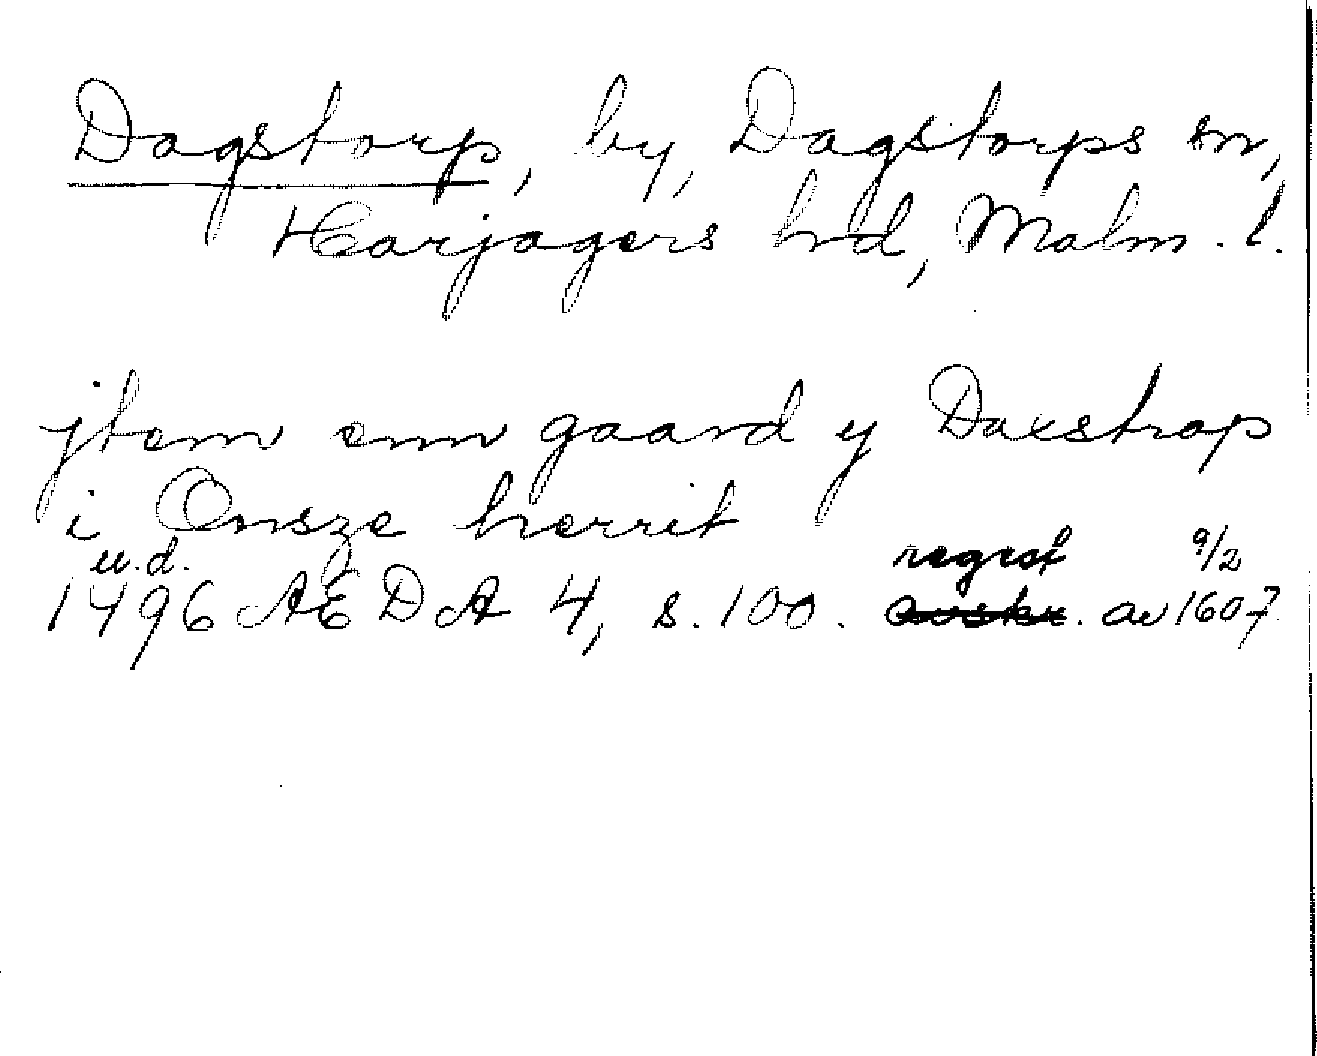 Dagstorp, by, Dagstorps sn,
Harjagers hrd, Malm. l.
jtem enn gaard y Daxstrop
i Onsze herrit
u.d. regest 9/2
1496 AEDA 4, s. 100. avskr. av 1607.